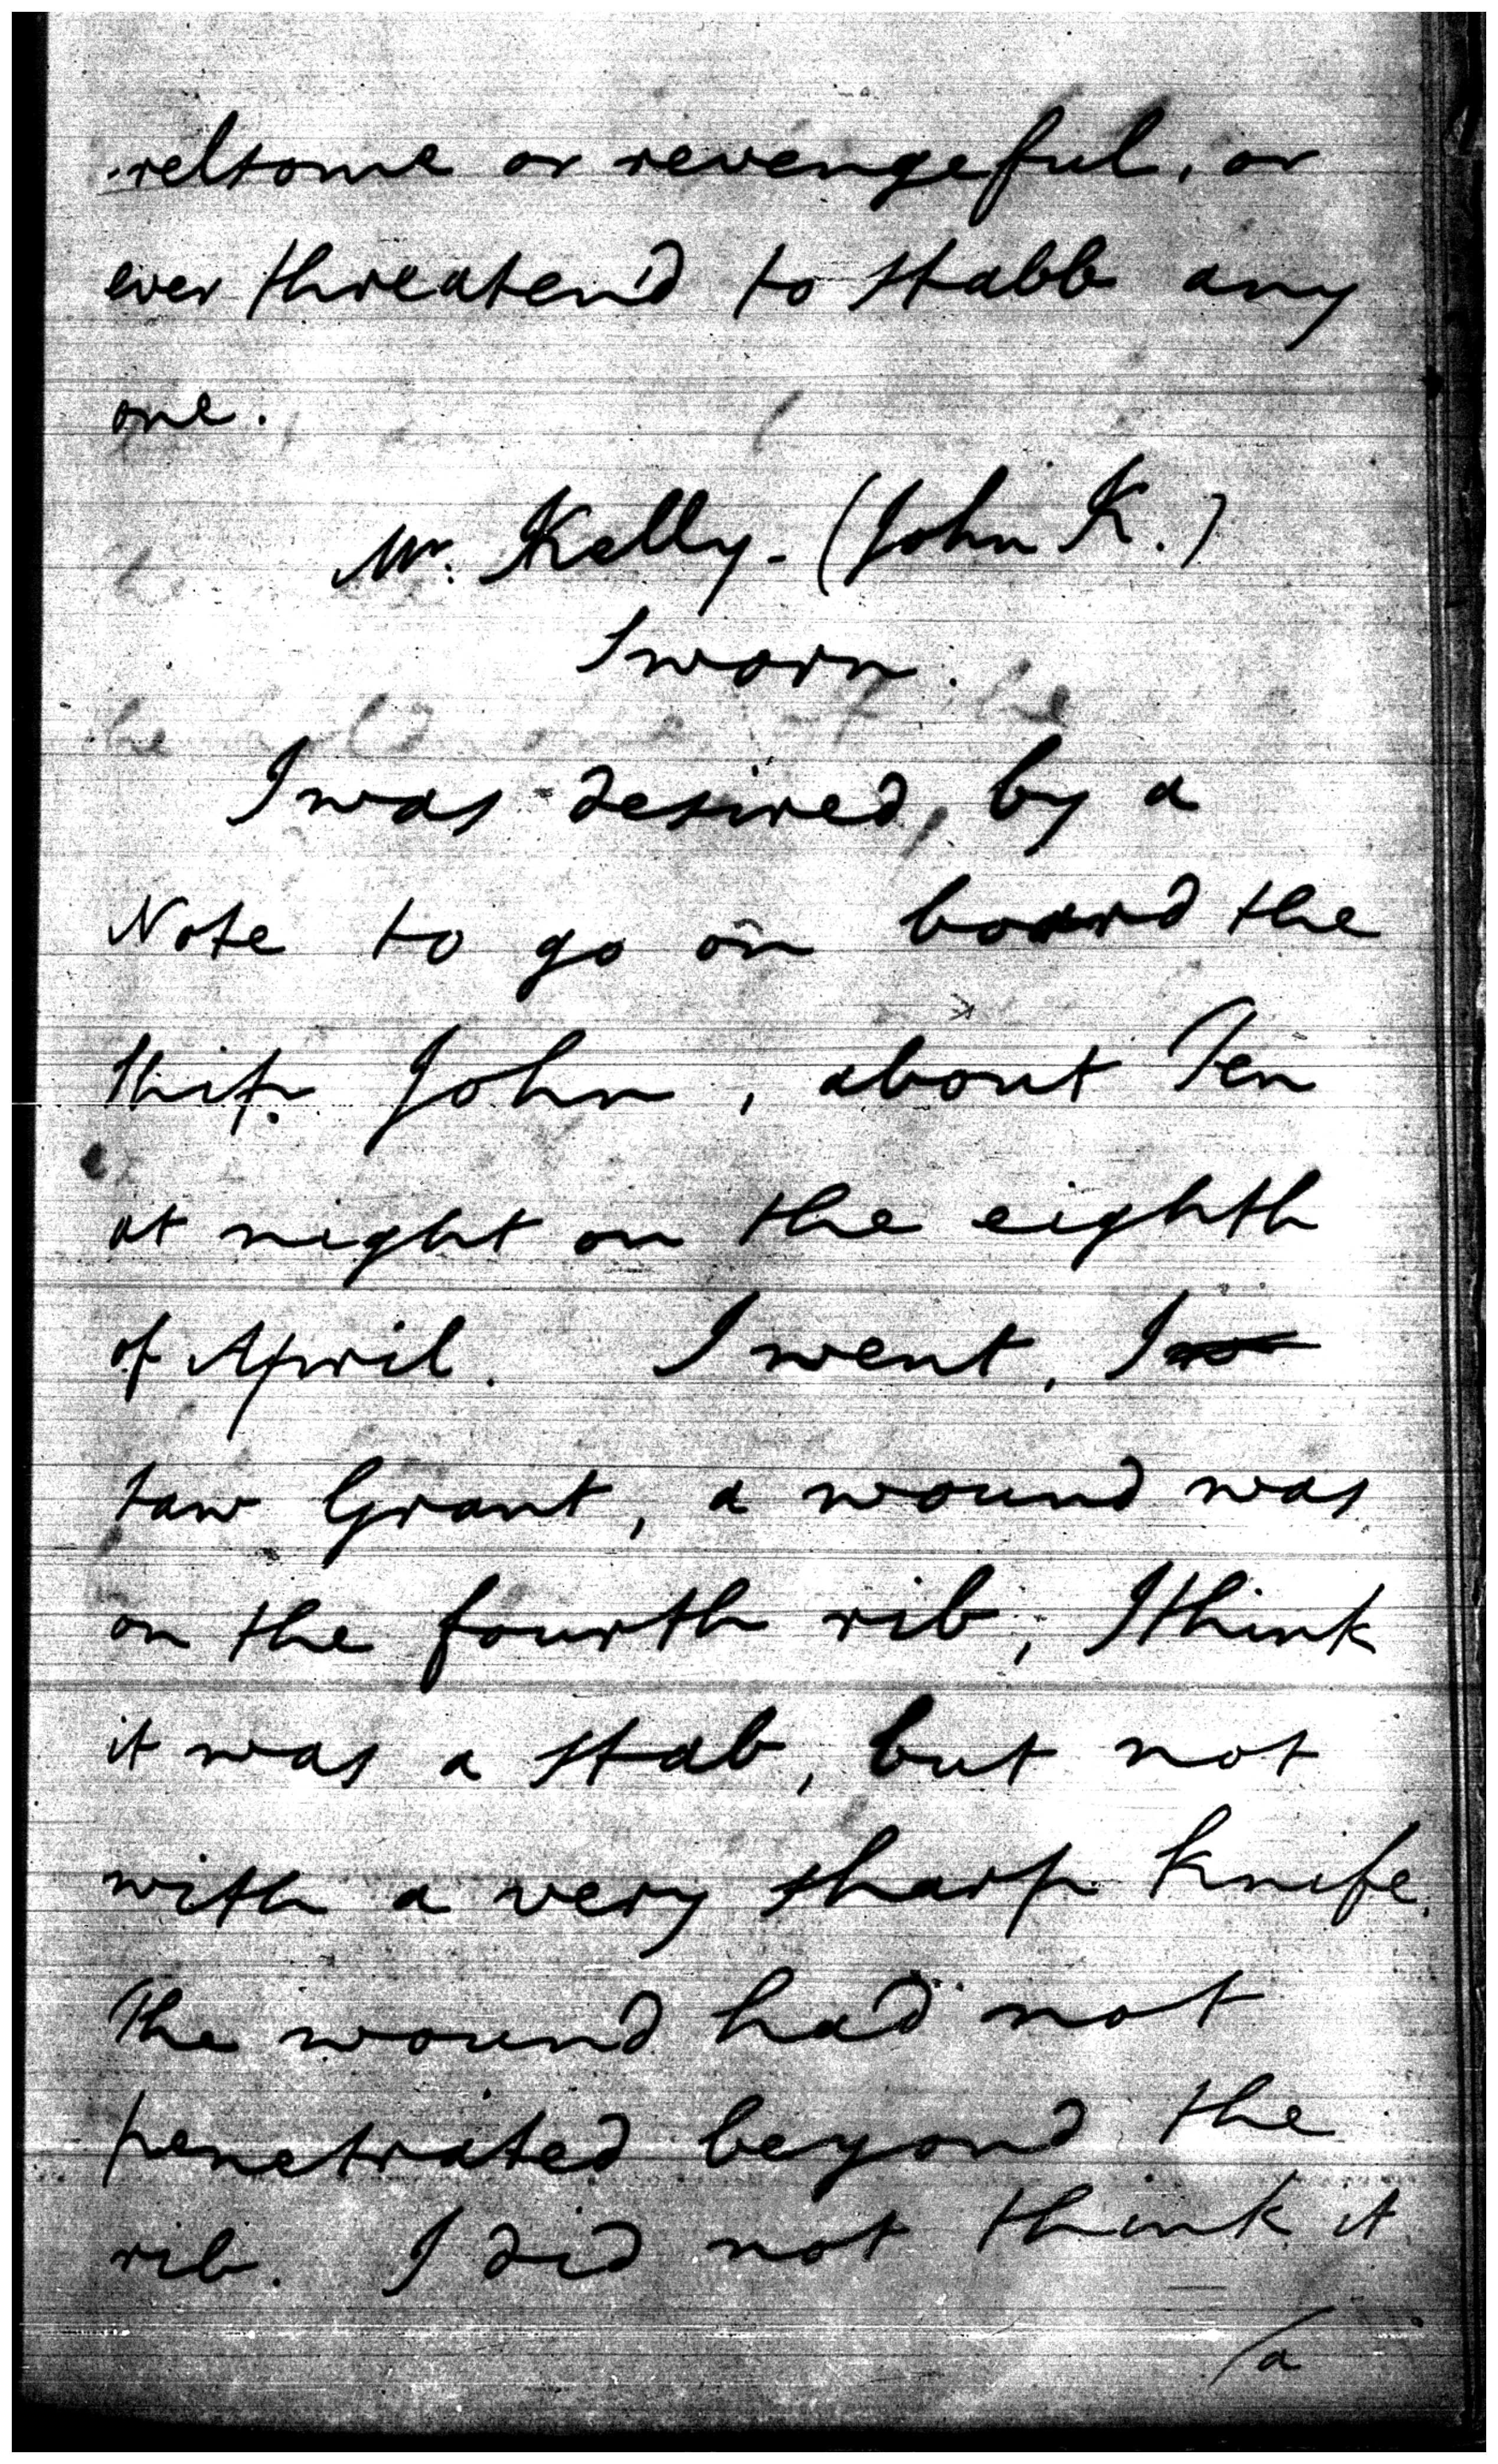 -relsome or revengeful, or
ever threaten'd to stabb any
one.
Mr. Kelly - (John K.)
Sworn.
I was desired, by a
Note to go on board the
ship John, about Ten
at night on the eighth
of April. I went, I
saw Grant, a wound was
on the fourth rib, I think
it was a stab, but not
with a very sharp knife.
The wound had not
penetrated beyond the
rib. I did not think it
/a